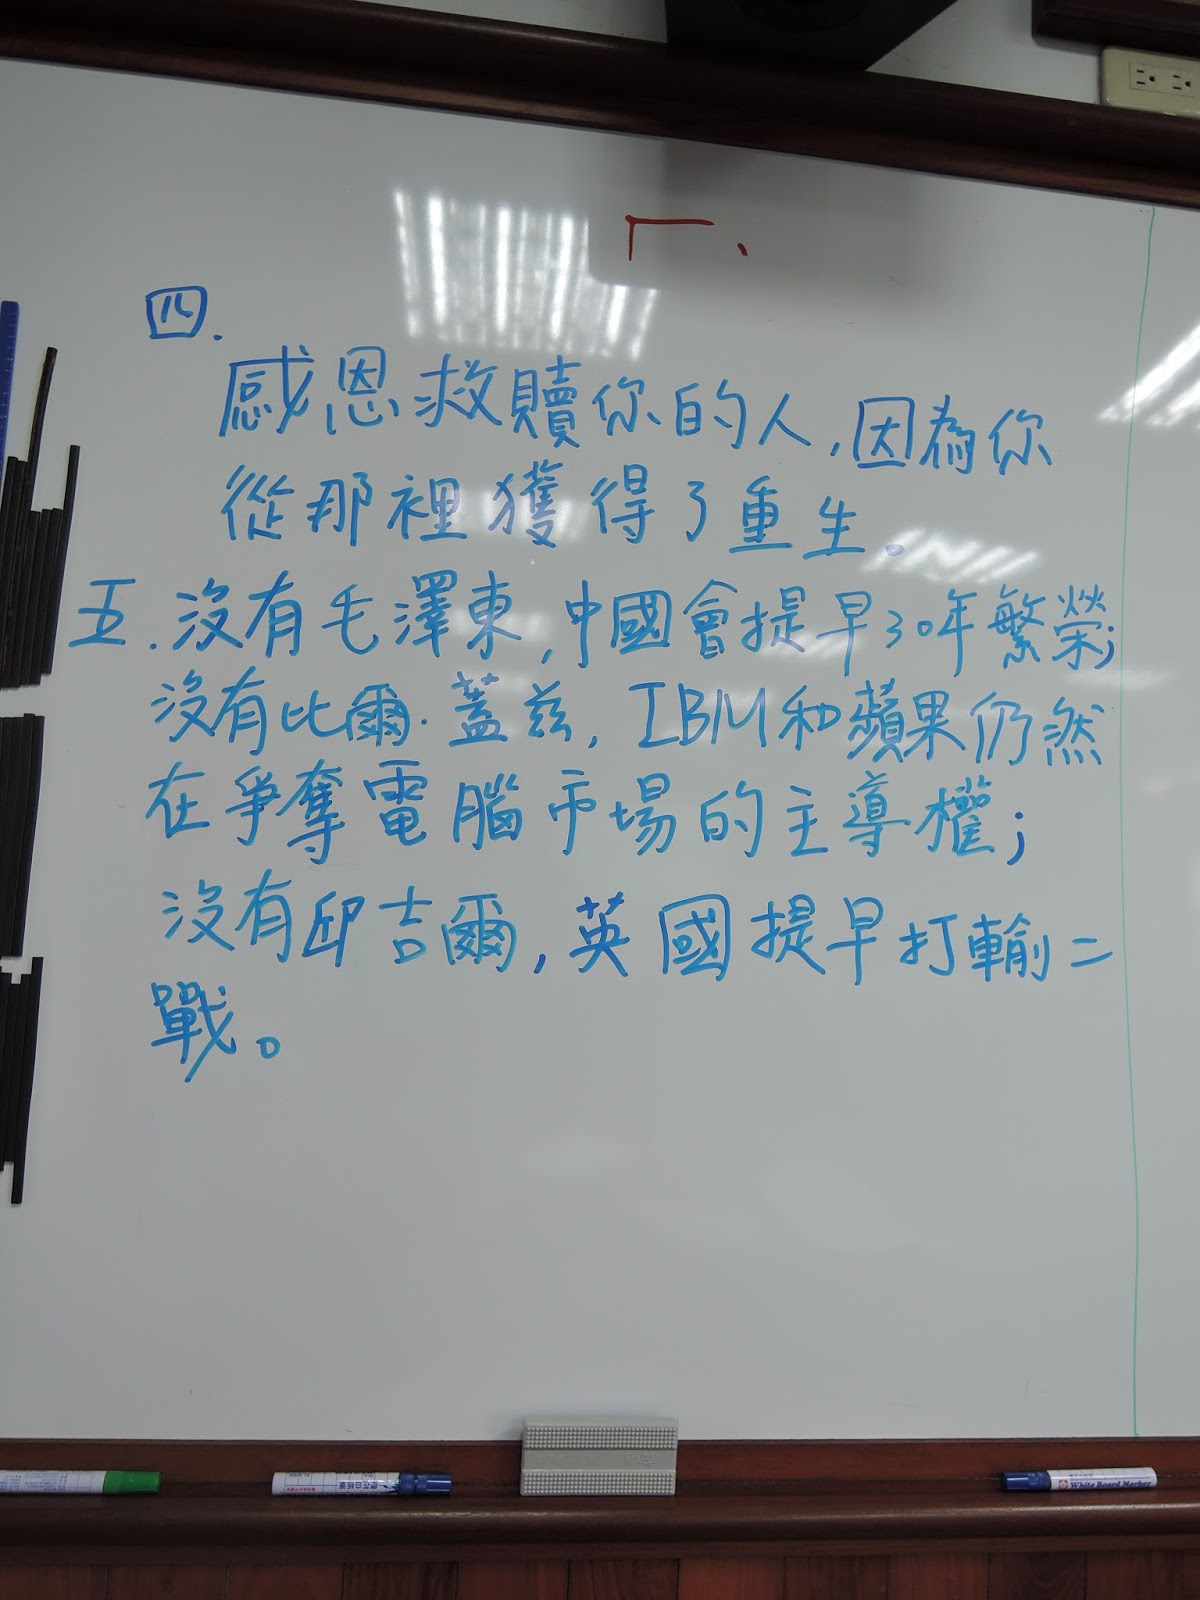 四.
感恩救贖你的人,因為你
從那裡獲得了重生.
五.沒有毛澤東,中國會提早30年繁榮;
沒有比爾·蓋茲,IBM和蘋果仍然
在爭奪電腦市場的主導權;
沒有邱吉爾,英國提早打輸二
戰。
White Board Marker